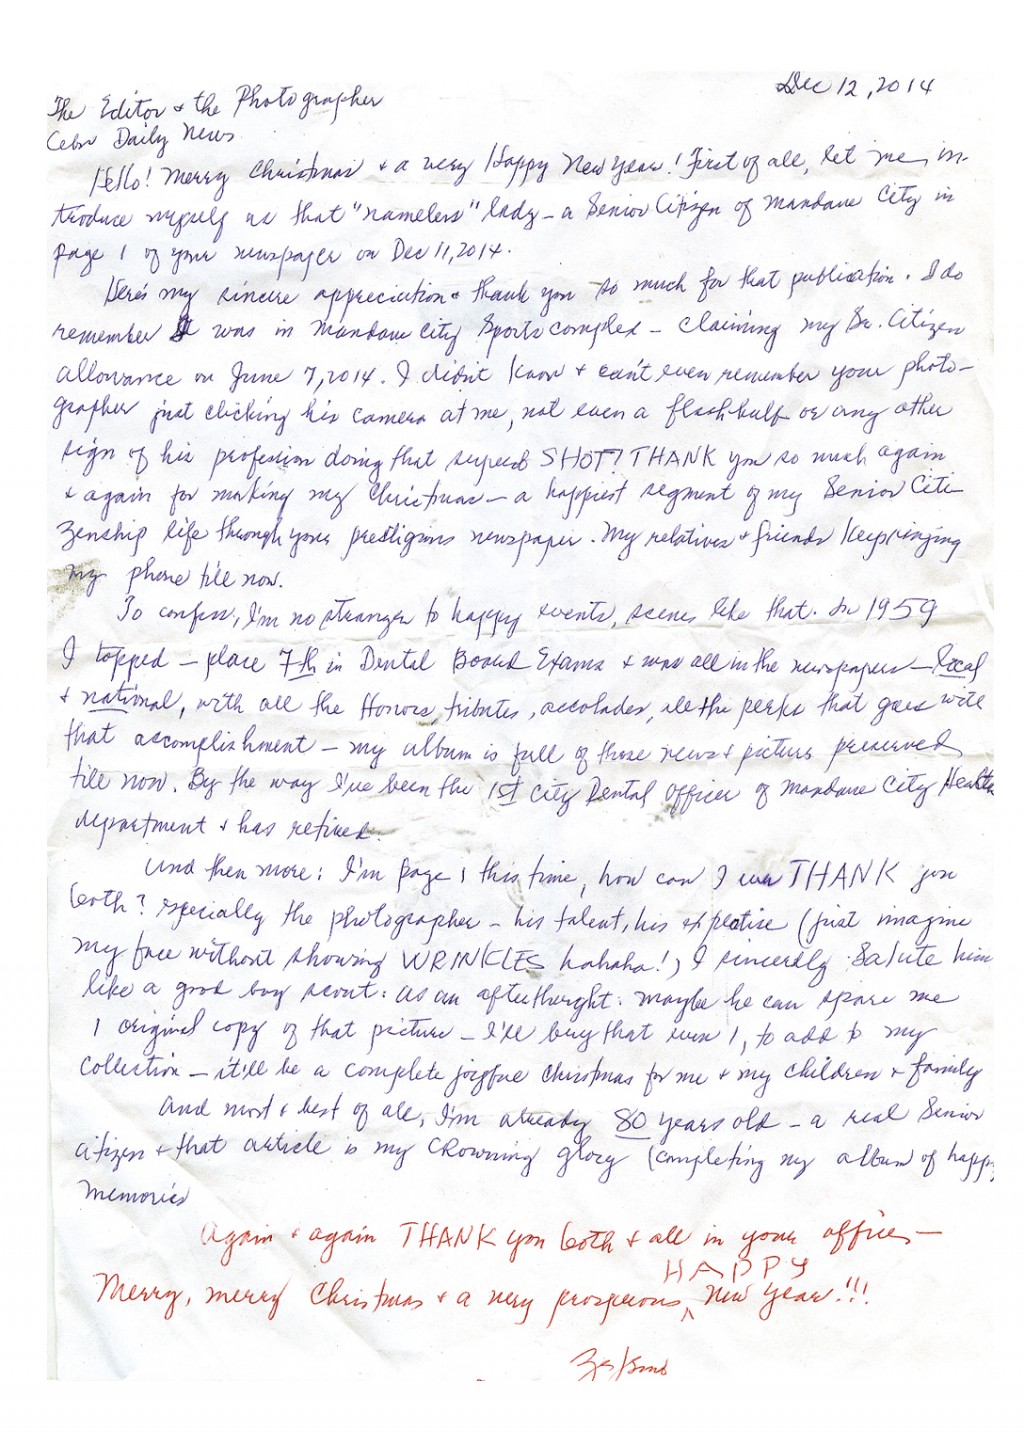 Dec 12, 2014
The Editor & the Photographer
Cebu Daily News
Hello! Merry Christmas & a very Happy New Year! First of all, let me in-
troduce myself as that "nameless" lady - a Senior Citizen of Mandaue City in
page 1 of your newspaper on Dec 11, 2014.
Here's my sincere appreciation & thank you so much for that publication. I do
remember it was in Mandaue City Sports complex - claiming my Sr. Citizen
allowance on June 7, 2014. I didn't know & can't even remember your photo-
grapher just clicking his camera at me, not even a flashbulb or any other
sign of his profession doing that superb SHOT! THANK you so much again
& again for making my Christmas - a happiest segment of my Senior Citi-
zenship life through your prestigious newspaper. My relatives & friends keep ringing
my phone till now.
To confess, I'm no stranger to happy events, scenes like that. In 1959
I topped - place 7th in Dental Board Exams & was all in the newspapers - local
& national, with all the Honors, tributes, accolades, all the perks that goes with
that accomplishment - my album is full of those news & picture preserved
till now. By the way I've been the 1st City Dental Officer of Mandaue City Health
department & has retired.
And then more: I'm page 1 this time, how can I ever THANK you
both? specially the photographer - his talent, his expertise (just imagine
my face without showing WRINKLES hahaha!) I sincerely Salute him
like a good boy scout: as an afterthought: maybe he can spare me
1 original copy of that picture - I'll buy that even 1, to add to my
collection - it'll be a complete joyful Christmas for me & my children & family
And most & best of all, I'm already 80 years old - a real Senior
Citizen & that article is my CROWNING glory (completing my album of happy
memories
Again & again THANK you both & all in your office -
HAPPY
Merry, merry Christmas & a very prosperous ^ New Year!!!